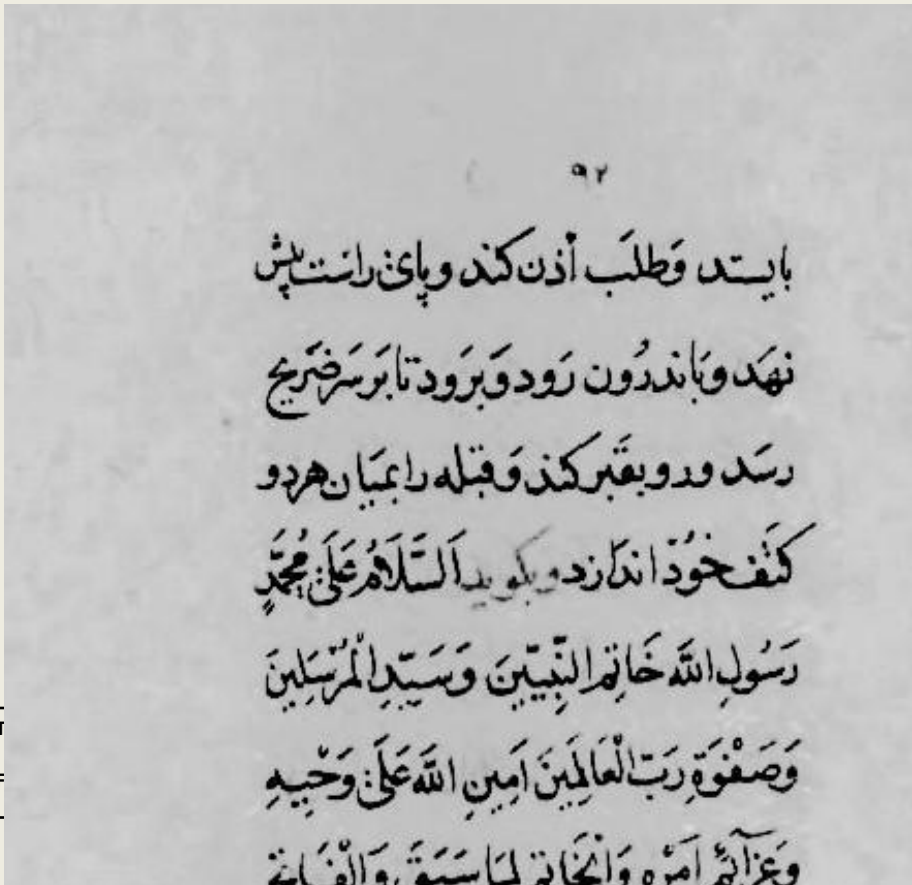 ۹۲
بایستد وَطلَب أذن کند و پای راست پیش
نهَد و بَاندرُون رَود وَ بَرَود تا بَر سَر ضَریح
رسَد و رو بقَبر کند وَ قبله را بمیَان هر دو
کتَف خُود اندَازد و بکوید اَلسَّلَامُ عَلَی مُحَمَّدٍ
رَسُولِ اللَّه خَاتِمِ النَّبِیّینَ وَسَیّدِ الْمُرْسَلِینَ
وَصَفْوَةِ رَبّ الْعَالَمِینَ اَمِینِ اللَّه عَلَی وَحْیِهِ
وَعَزَآئِمِ اَمْرِهِ وَالْخَاتِمِ لِمَا سَبَقَ وَالْفَاتِحِ